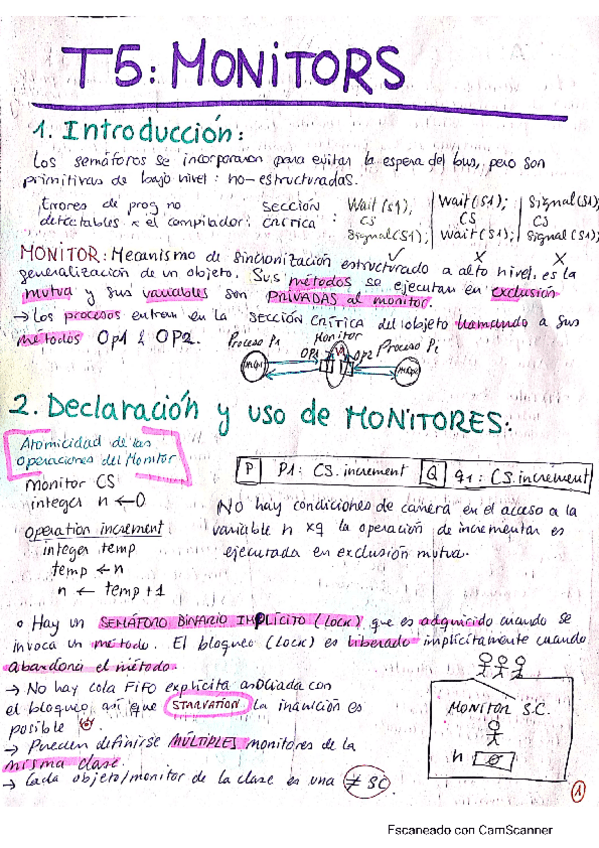 T5: MONITORS
1. Introducción:
Los semáforos se incorporaron para evitar la espera del bus, pero son
primitivas de bajo nivel: no-estructuradas.
Errores de prog no sección Wait(S1); Wait(S1); Signal(S1);
detectables x el compilador: crítica : CS CS CS
Signal(S1); Wait(S1); Signal(S1);
MONITOR: Mecanismo de sincronización estructurado a alto nivel, es la
generalización de un objeto. Sus métodos se ejecutan en exclusión
mutua y sus variables son PRIVADAS al monitor.
→ Los procesos entran en la sección crítica del objeto llamando a sus
métodos Op1 & OP2.
Proceso P1 Monitor Proceso P2
OP1 OP2
2. Declaración y uso de MONITORES:
Atomicidad de las
operaciones del Monitor
Monitor CS
integer n ← 0
operation increment
integer temp
temp ← n
n ← temp + 1
P P1: CS.increment Q q1: CS.increment
No hay condiciones de carrera en el acceso a la
variable n xq la operación de incrementar es
ejecutada en exclusión mutua.
• Hay un SEMÁFORO BINARIO IMPLÍCITO (LOCK) que es adquirido cuando se
invoca un método. El bloqueo (LOCK) es liberado implícitamente cuando
abandona el método.
→ No hay cola FIFO explícita asociada con
el bloqueo, así que STARVATION la inanición es
posible
→ Pueden definirse MÚLTIPLES monitores de la
misma clase.
→ Cada objeto/monitor de la clase es una ≠ SC
MONITOR S.C.
n
1
Escaneado con CamScanner